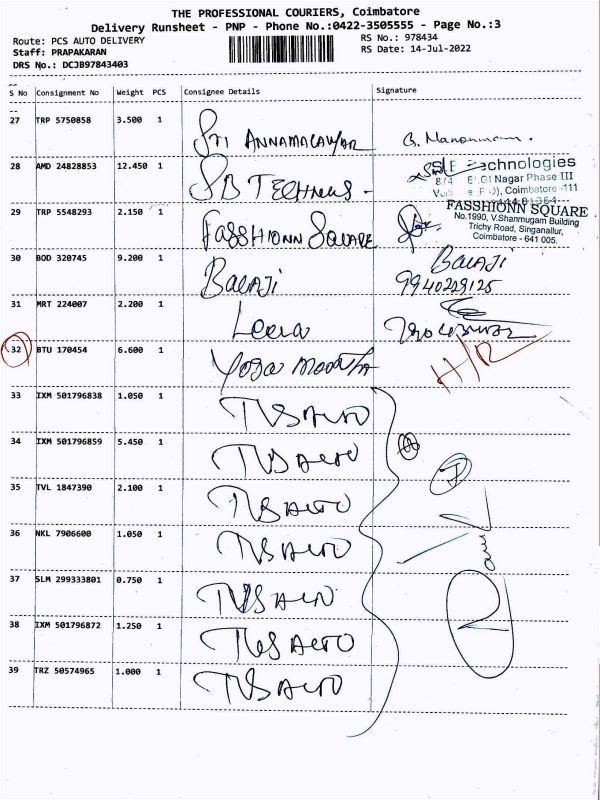 THE PROFESSIONAL COURIERS, Coimbatore
Delivery Runsheet - PNP - Phone No.:0422-3505555 - Page No.:3
Route: PCS AUTO DELIVERY
RS No.: 978434
Staff: PRAPAKARAN
RS Date: 14-Jul-2022
DRS No.: DCJB97843403
S No Consignment No Weight PCS Consignee Details Signature
27 TRP 5750858 3.500 1 Sri ANNAMALAIYAR
28 AMD 24828853 12.450 1 SB TECHNUS -
echnologies
Nagar Phase III
Coimbatore -111
29 TRP 5548293 2.150 1 FASSHIONN SQUARE
FASSHIONN SQUARE
No.1990, V.Shanmugam Building
Trichy Road, Singanallur,
Coimbatore - 641 005.
30 BOD 320745 9.200 1 BALAJI BALAJI
31 MRT 224007 2.200 1 Leela
32 BTU 170454 6.600 1 Yoga H/R
33 IXM 501796838 1.050 1 TVS AUTO
34 IXM 501796859 5.450 1 TVS AUTO
35 TVL 1847390 2.100 1 TVS AUTO
36 NKL 7906600 1.050 1 TVS AUTO
37 SLM 299333801 0.750 1 TVS AUTO
38 IXM 501796872 1.250 1 TVS AUTO
39 TRZ 50574965 1.000 1 TVS AUTO